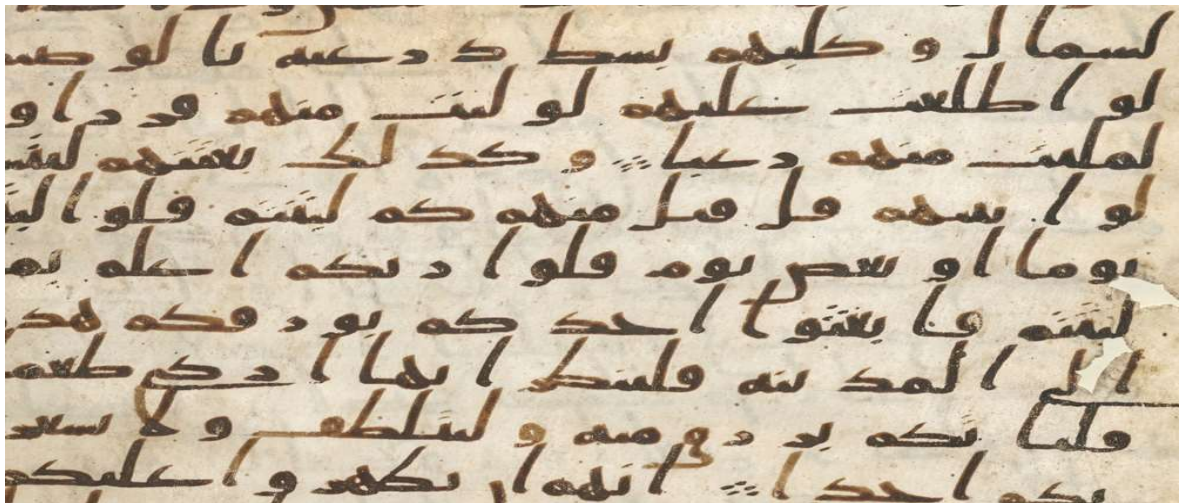 لشمال و كلبهم بسط ذرعيه بالوصيد
لو اطلعت عليهم لوليت منهم فررا و
لملیت منهم رعبا و كذلك بعثنهم ليتسا
لوا بينهم قل قيل منهم كم لبثتم قلوا لبثنا
يوما او بعض يوم قلوا ربكم اعلم بما
لبثتم فابعثوا احدكم بورقكم هذه
الى المدينه فلينظر ايها ازكى طعما
فلياتكم برزق منه و ليتلطف و لا يشعرن
بكم احدا انهم ان يظهروا عليكم